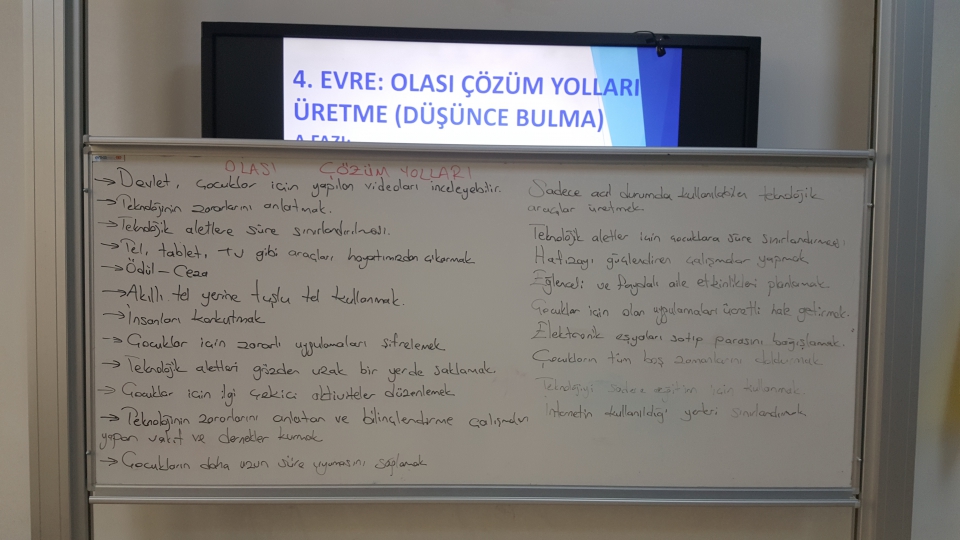 4. EVRE: OLASI ÇÖZÜM YOLLARI
ÜRETME (DÜŞÜNCE BULMA)
A FAZI:
OLASI ÇÖZÜM YOLLARI
→ Devlet, çocuklar için yapılan videoları inceleyebilir.
→ Teknolojinin zararlarını anlatmak.
→ Teknolojik aletlere süre sınırlandırılması.
→ Tel, tablet, TV gibi araçları hayatımızdan çıkarmak
→ Ödül – Ceza
→ Akıllı tel yerine tuşlu tel kullanmak.
→ İnsanları korkutmak
→ Çocuklar için zararlı uygulamaları şifrelemek
→ Teknolojik aletleri gözden uzak bir yerde saklamak.
→ Çocuklar için ilgi çekici aktiviteler düzenlemek
→ Teknolojinin zararlarını anlatan ve bilinçlendirme çalışmaları
yapan vakıf ve dernekler kurmak
→ Çocukların daha uzun süre uyumasını sağlamak
Sadece acil durumda kullanılabilen teknolojik
araçlar üretmek.
Teknolojik aletler için çocuklara süre sınırlandırması
Hafızayı güçlendiren çalışmalar yapmak
Eğlenceli ve faydalı aile etkinlikleri planlamak.
Çocuklar için olan uygulamaları ücretli hale getirmek.
Elektronik eşyaları satıp parasını bağışlamak.
Çocukların tüm boş zamanlarını doldurmak
Teknolojiyi sadece eğitim için kullanmak.
İnternetin kullanıldığı yerleri sınırlandırmak